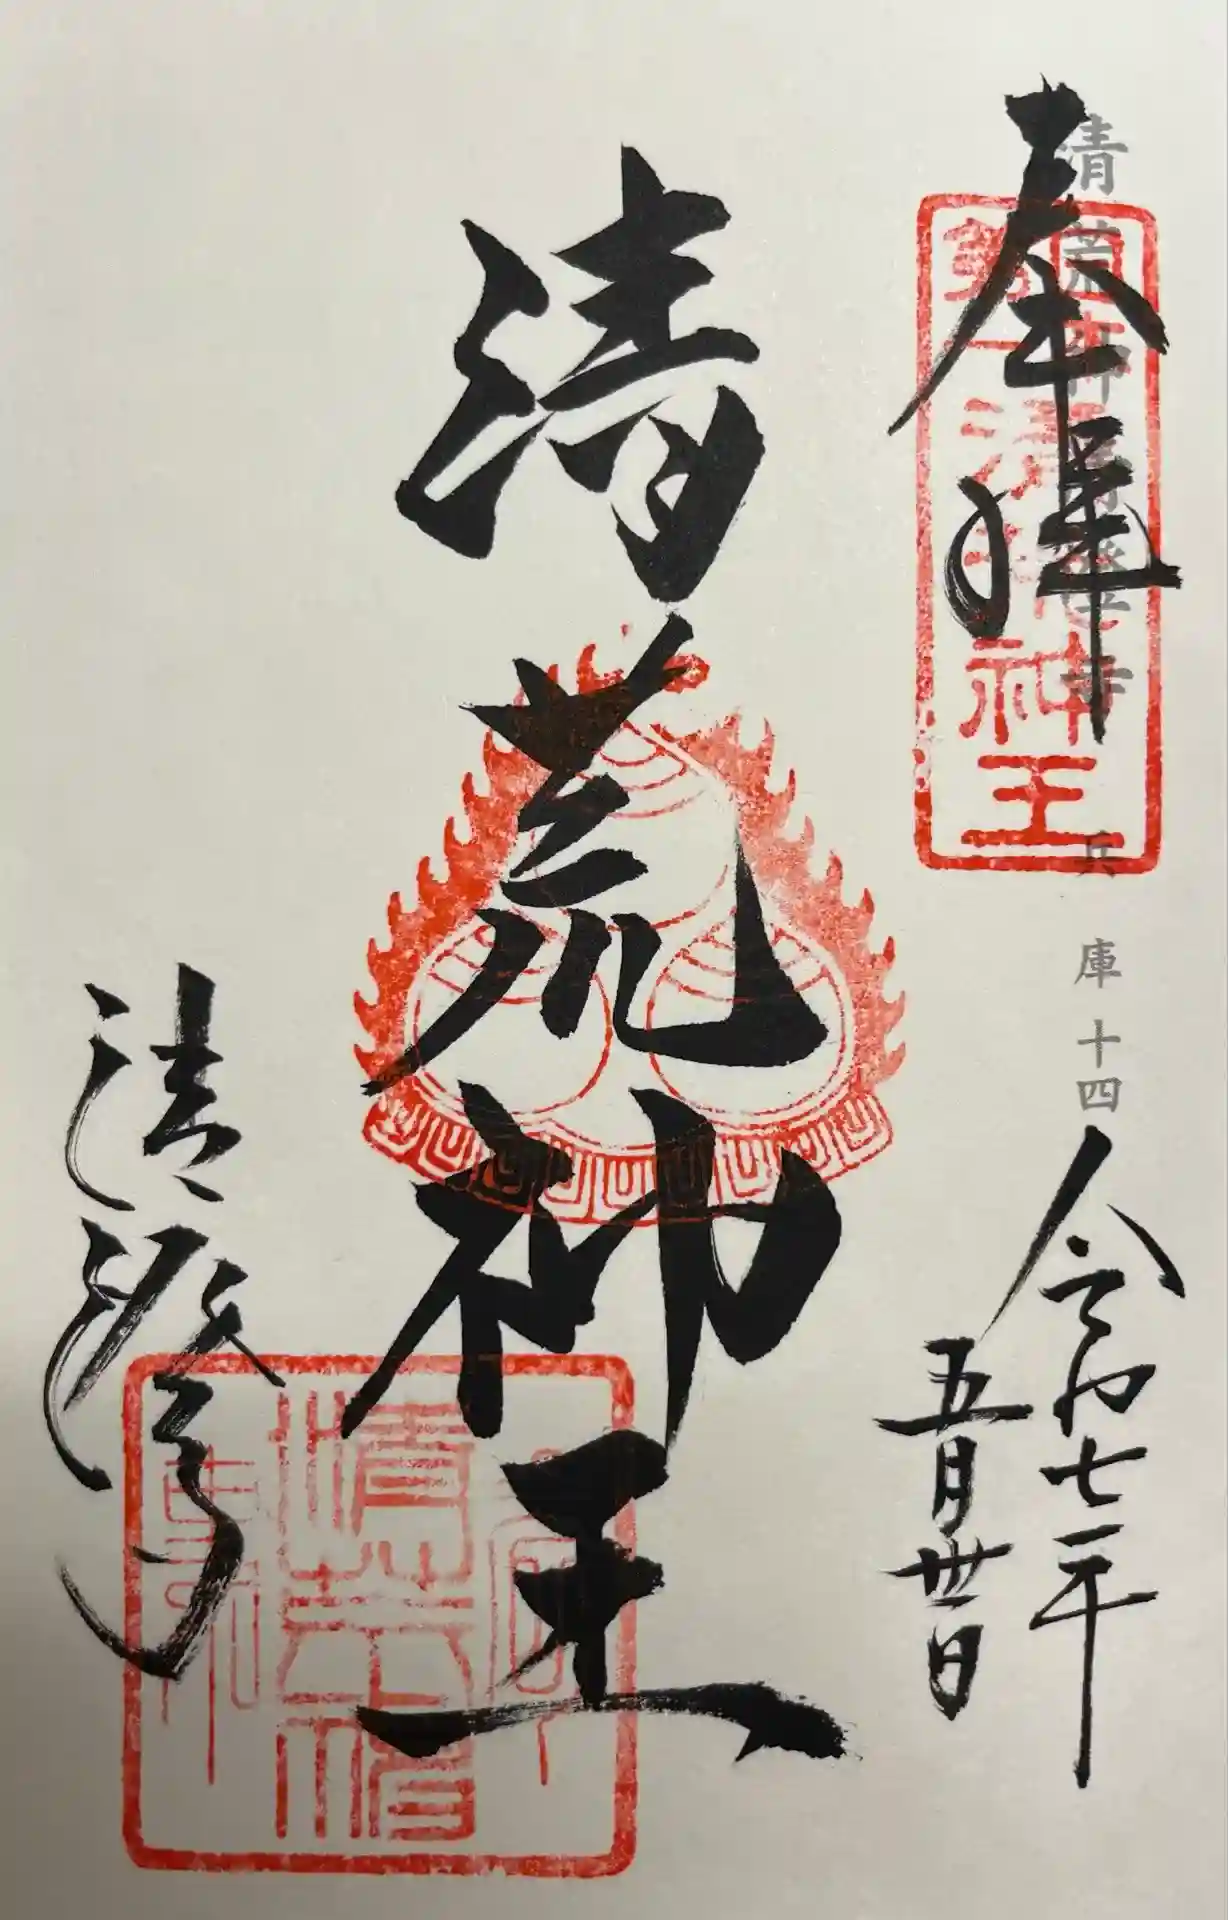 奉拝
清荒神清澄寺
兵庫十四
令和七年
五月廿日
日本
第一
清荒神王
清荒神王
清澄寺